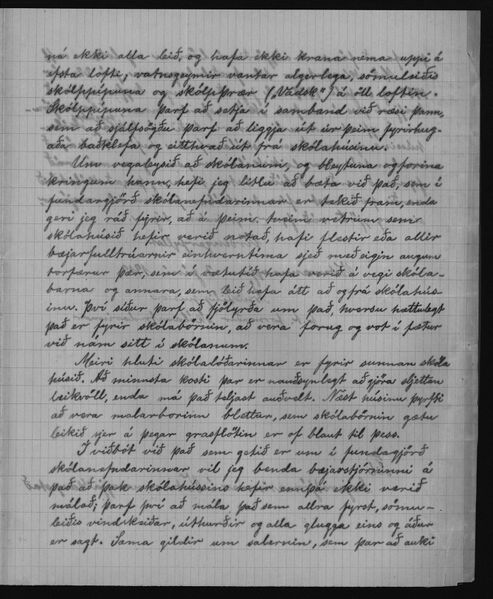 ná ekki alla leið, og hafa ekki krana nema uppi á
efsta lofti; vatnsgeymir vantar algerlega, sömuleiðis
skólppípuna og skólpþrær („Vadsk") á öll loftin.
Skólppípuna þarf að setja í samband við ræsi þann,
sem að sjálfsögðu þarf að leggja út úr þeim fyrirhug-
aða baðklefa og eitthvað út frá skólahúsinu.
Um vegabysið að skólanum, og bleytuna og forina
kringum hann, hefi jeg litlu að bæta við það, sem í
fundargjörð skólanefndarinnar er tekið fram, enda
geri jeg ráð fyrir, að á þeim tveim vetrum, sem
skólahúsið hefir verið notað, hafi flestir eða allir
bæjarfulltrúarnir einhverntíma sjeð með eigin augum
torfærur þær, sem í vætutíð hafa verið á vegi skóla-
barna og annara, sem leið hafa átt að og frá skólahús-
inu. Því síður þarf að fjölyrða um það, hversu hættulegt
það er fyrir skólabörnin, að vera forug og vot í fætur
við nám sitt í skólanum.
Meiri hluti skólalóðarinnar er fyrir sunnan skóla
húsið. Að minnsta kosti þar er nauðsynlegt að gjöra sljettan
leikvöll, enda má það teljast auðvelt. Næst húsinu þyrfti
að vera malarborinn blettur, sem skólabörnin gætu
leikið sjer á þegar grasflötin er of blaut til þess.
Í viðbót við það sem getið er um í fundagjörð
skólanefndarinnar vil jeg benda bæjarstjórninni á
það að þak skólahússins hefir ennþá ekki verið
málað; þarf því að mála það sem allra fyrst, sömu-
leiðis vindskeiðar, útihurðir og alla glugga eins og áður
er sagt. Sama gildir um salernin, sem þar að auki